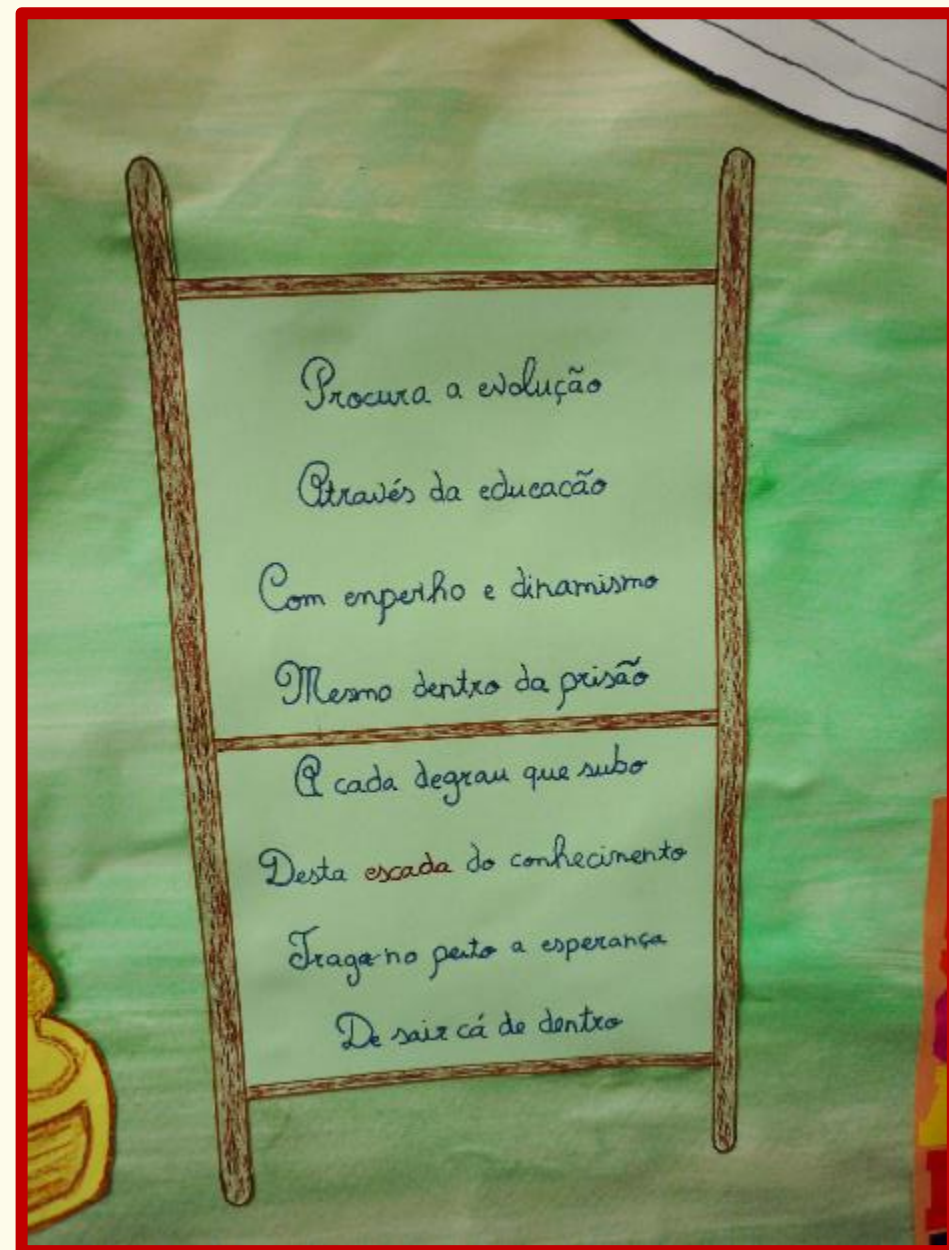 Procura a evolução
Através da educacão
Com enpenho e dinamismo
Mesmo dentro da prisão
A cada degrau que subo
Desta escada do conhecimento
Trago no peito a esperança
De sair cá de dentro